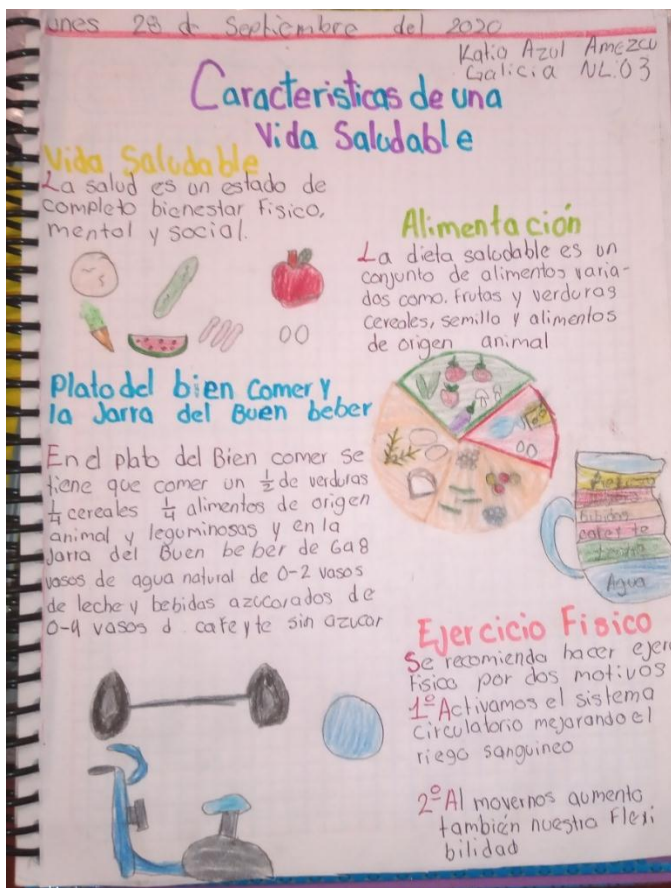 unes 28 d Septiembre del 2020
Katia Azul Amezcu
Galicia NL.03
Caracteristicas de una
Vida Saludable
Vida Saludable
La salud es un estado de
completo bienestar Fisico,
mental y social.
Alimentación
La dieta saludable es un
conjunto de alimentos varia-
dos como. frutas y verduras
cereales, semilla y alimentos
de origen animal
Plato del bien Comer y
la Jarra del Buen beber
En el plato del Bien comer se
tiene que comer un 1/2 de verduras
1/4 cereales 1/4 alimentos de origen
animal y leguminosas y en la
Jarra del Buen beber de 6a8
vasos de agua natural de 0-2 vasos
de leche y bebidas azucarados de
0-4 vasos d cafe y te sin azucar
Bebidas
cafe te
Leche
Agua
Ejercicio Fisico
Se recomienda hacer ejer
Fisico por dos motivos
1º Activamos el sistema
circulatorio mejorando el
riego sanguineo
2º Al movernos aumento
también nuestra Flexi
bilidad